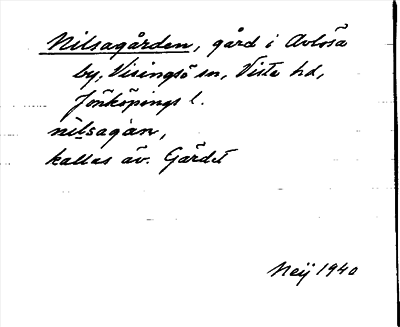 Nilsagården, gård i Avlösa
by, Visingsö sn, Vista hd,
Jönköpings l.
nilsagan,
kallas äv. Gärdet
Meij 1940